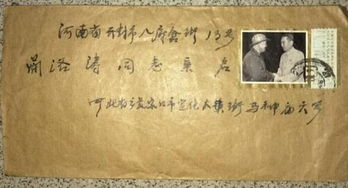 河南省开封市八府仓街13号
蔺洛涛同志菓启
河北省张家口市宣化大横街马神庙六号